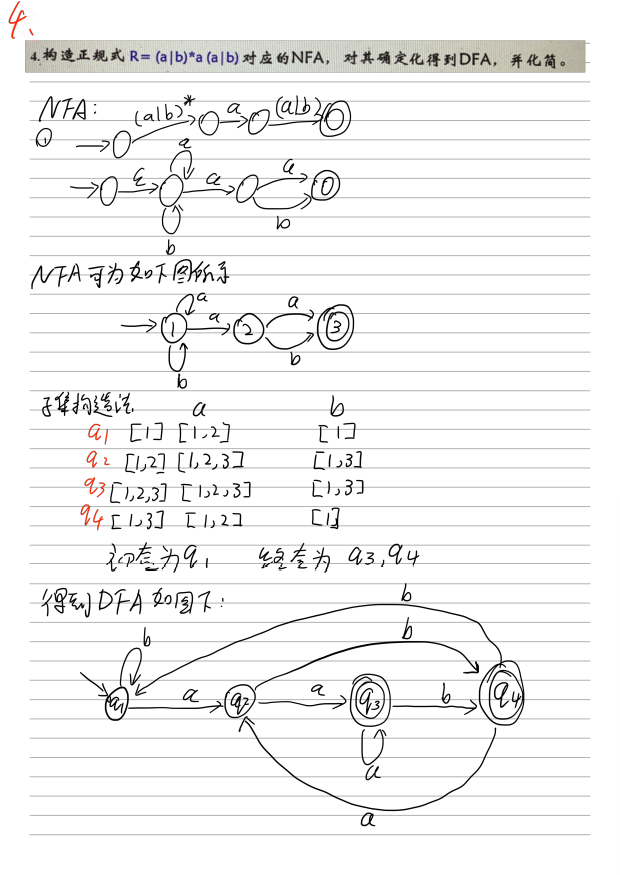 4、
4.构造正规式 R= (a|b)*a (a|b) 对应的NFA， 对其确定化得到DFA， 并化简。
NFA: (a|b)* a (a|b)
①
a
ε a a
b b
NFA可为如下图所示
a a a
1 2 3
b b
子集构造法 a b
q1 [1] [1,2] [1]
q2 [1,2] [1,2,3] [1,3]
q3 [1,2,3] [1,2,3] [1,3]
q4 [1,3] [1,2] [1]
初态为q1 终态为 q3,q4
得到DFA如图下:
b
b b
q1 a q2 a q3 b q4
a
a